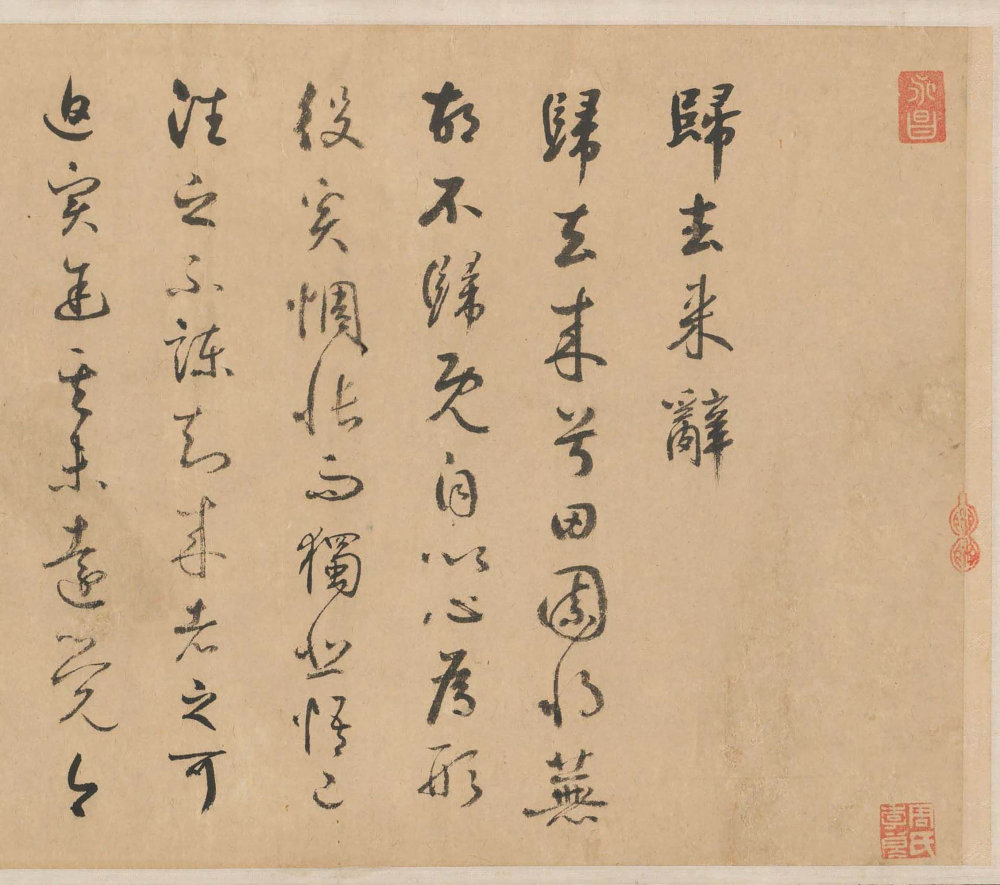 永昌
歸去来辭
歸去来兮田園將蕪
胡不歸既自以心為形
役奚惆悵而獨悲悟已
往之不諫知来者之可
追實迷其未遠覺今